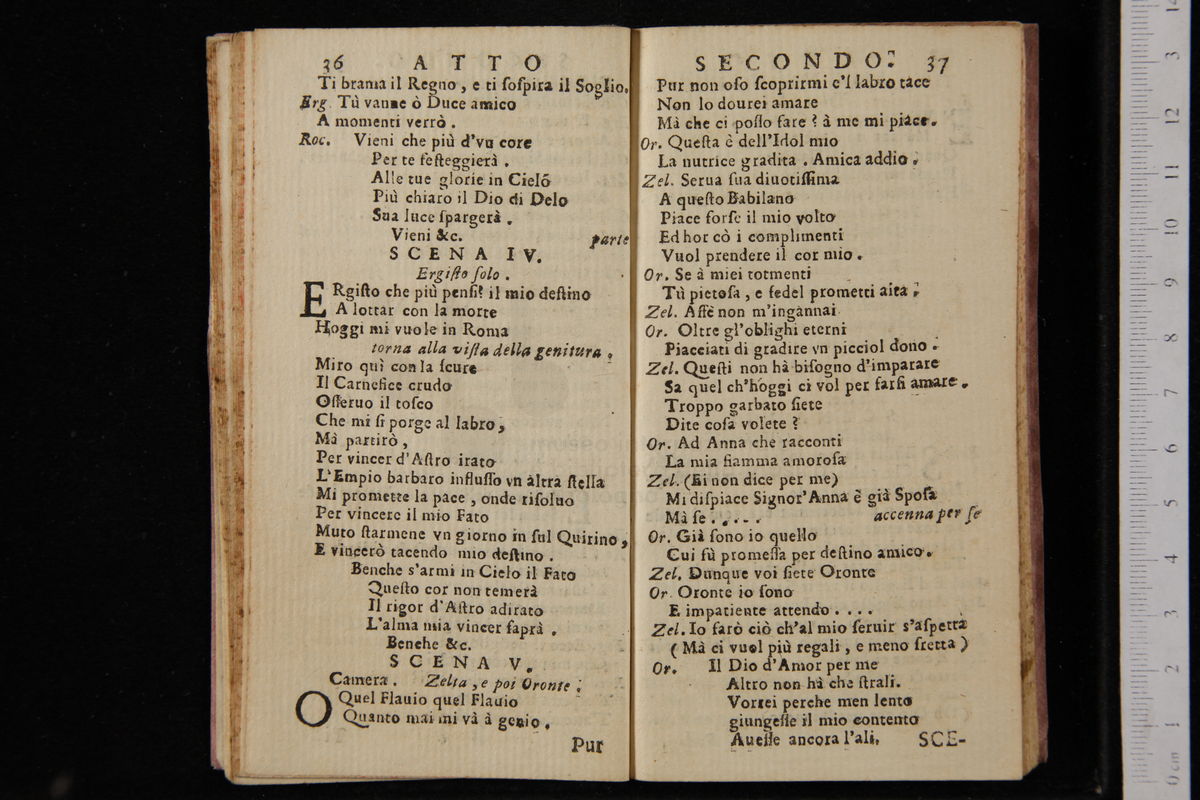 36 ATTO
Ti brama il Regno, e ti ſoſpira il Soglio.
Erg. Tù vanne ò Duce amico
A momenti verrò.
Roc. Vieni che più d'vn core
Per te feſteggierà.
Alle tue glorie in Cielo
Più chiaro il Dio di Delo
Sua luce ſpargerà.
Vieni &c. parte
SCENA IV.
Ergiſto ſolo.
ERgiſto che più penſi? il mio deſtino
A lottar con la morte
Hoggi mi vuole in Roma
torna alla viſta della genitura.
Miro quì con la ſcure
Il Carnefice crudo
Oſſeruo il toſco
Che mi ſi porge al labro,
Mà partirò,
Per vincer d'Aſtro irato
L'Empio barbaro influſſo vn àltra ſtella
Mi promette la pace, onde riſoluo
Per vincere il mio Fato
Muto ſtarmene vn giorno in ſul Quirino,
E vincerò tacendo mio deſtino.
Benche s'armi in Cielo il Fato
Queſto cor non temerà
Il rigor d'Aſtro adirato
L'alma mia vincer ſaprà.
Benche &c.
SCENA V.
Camera. Zelta, e poi Oronte.
O Quel Flauio quel Flauio
Quanto mai mi và à genio.
Pur
SECONDO. 37
Pur non oſo ſcoprirmi e'l labro tace
Non lo dourei amare
Mà che ci poſſo fare? à me mi piàce.
Or. Queſta è dell'Idol mio
La nutrice gradita. Amica addio.
Zel. Serua ſua diuotiſſima
A queſto Babilano
Piace forſe il mio volto
Ed hor cò i complimenti
Vuol prendere il cor mio.
Or. Se à miei tormenti
Tù pietoſa, e fedel prometti aita;
Zel. Affè non m'ingannai
Or. Oltre gl'oblighi eterni
Piacciati di gradire vn picciol dono.
Zel. Queſti non hà biſogno d'imparare
Sa quel ch'hoggi ci vol per farſi amare.
Troppo garbato ſiete
Dite coſa volete?
Or. Ad Anna che racconti
La mia fiamma amoroſa
Zel. (Ei non dice per me)
Mi diſpiace Signor'Anna è già Spoſa
Mà ſe . . . . . accenna per ſe
Or. Già ſono io quello
Cui fù promeſſa per deſtino amico.
Zel. Dunque voi ſiete Oronte
Or. Oronte io ſono
E impatiente attendo . . . .
Zel. Io farò ciò ch'al mio ſeruir s'aſpetta
(Mà ci vuol più regali, e meno fretta)
Or. Il Dio d'Amor per me
Altro non hà che ſtrali.
Vorrei perche men lento
giungeſſe il mio contento
Aueſſe ancora l'ali. SCE-
0 cm 1 2 3 4 5 6 7 8 9 10 11 12 13 14